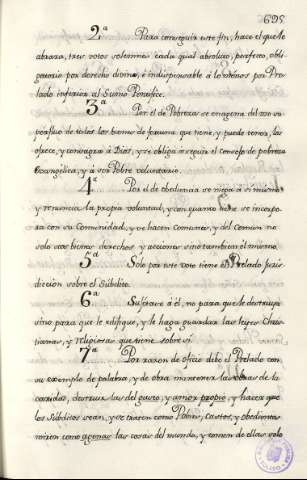 695
2ª Para conseguir este fin, hace el que le
abraza, tres votos solemnes cada qual absoluto, perfecto, obli-
gatorio por derecho divino, è indispensable à lo menos por Pre-
lado inferior al Sumo Pontifice.
3ª Por él de Pobreza se enagena del uso su-
perfluo de todos los bienes de fortuna que tiene, y puede tener, los
ofrece, y consagra à Dios, y se obliga à seguir el consejo de pobreza
Evangelica, y à ser Pobre voluntario.
4ª Por él de obediencia se niega à si mismo,
y renuncia la propria voluntad, y con quanto tiene se incorpo-
ra con su Comunidad, y se hacen comunes, y del comun no
solo sus bienes derechos y acciones sino tambien él mismo.
5ª Solo por este voto tiene el Prelado juris-
diccion sobre el Subdito.
6ª Sujetase à él, no para que le destruya
sino para que le edifique, y le haga guardar las leyes Chris-
tianas, y religiosas que tiene sobre si.
7ª Por razon de oficio debe el Prelado con
su exemplo de palabra, y de obra mantener las obras de la
caridad, destruir las del gusto, y amor propio, y hacer que
los Subditos vean, y se traten como Pobres, Castos, y obedientes
miren como agenas las cosas del mundo, y tomen de ellas solo